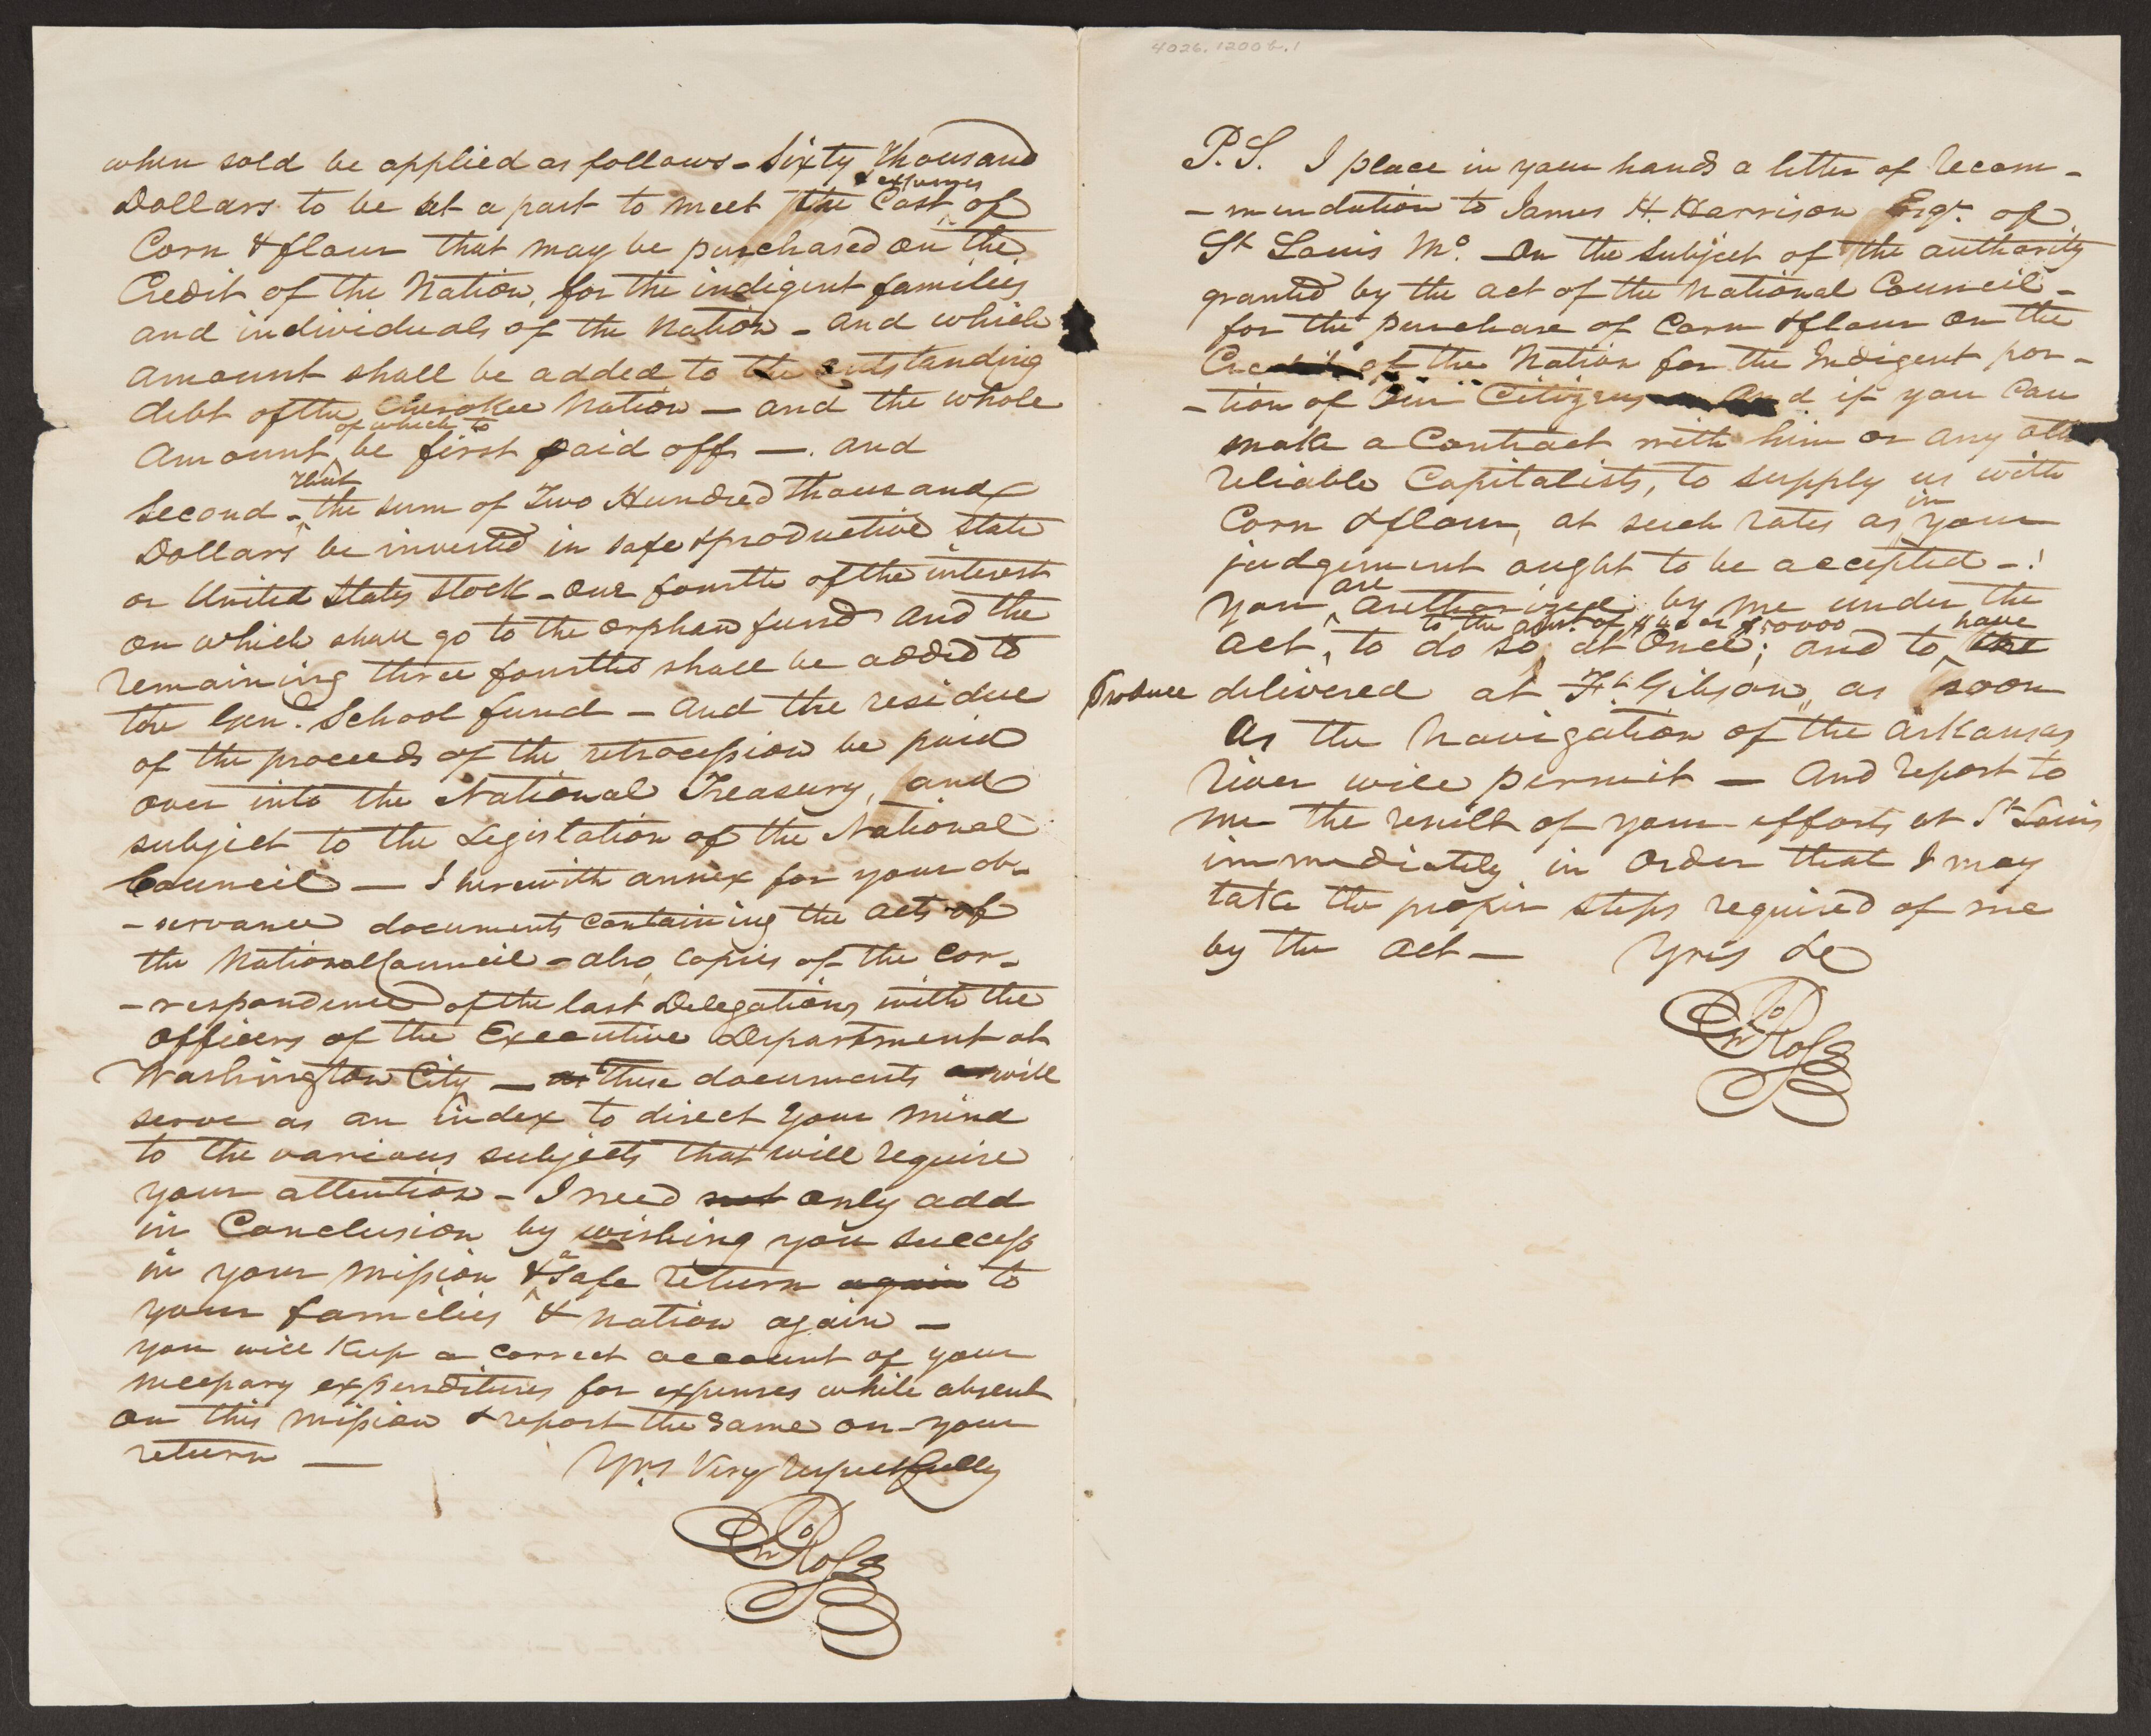 when sold be applied as follows - Sixty Thousand
& expenses
Dollars to be set a part to meet the Cost of
Corn & flour that may be purchased on the
Credit of the Nation, for the indigent families
and individuals of the Nation - and which
amount shall be added to the outstanding
debt of the Cherokee Nation - and the whole
of which to
amount be first paid off -. and
that
Second - the sum of Two Hundred thousand
Dollars be invested in safe & productive state
or United States Stock - one fourth of the interest
on which shall go to the orphan fund and the
remaining three fourths shall be added to
the Gen. School fund - and the residue
of the proceeds of the retrocession be paid
over into the National Treasury, and
subject to the Legislation of the National
Council - I herewith annex for your ob-
- servance documents containing the acts of
the National Council - also copies of the cor-
- respondence of the last Delegations with the
officers of the Executive Department at
Washington City - as these documents will
serve as an index to direct your mind
to the various subjects that will require
your attention - I need not only add
in Conclusion by wishing you success
a
in your mission & safe return again to
your families & nation again -
you will Keep a correct account of your
necessary expenditures for expenses while absent
on this mission & report the same on your
return -
Yrs. Very respectfully
Jno Ross
4026.1200b.1
P.S. I place in your hands a letter of recom-
- mendation to James H. Harrison Esqr. of
St Louis Mo. - On the subject of the authority
granted by the act of the National Council -
for the purchase of Corn & flour on the
Credit of the Nation for the Indigent por-
- tion of Our Citizens and if you can
make a Contract with him or any other
reliable Capitalists, to supply us with
in
Corn & flour, at such rates as your
judgement ought to be accepted -!
are
You authorized by me under the
to the amt. of $40 or $50000 have
act, to do so, at Once; and to the
Produce delivered at Ft. Gibson, as soon
as the Navigation of the Arkansas
river will permit - And report to
me the result of your efforts at St Louis
immediately in order that I may
take the proper steps required of me
by the act - Yrs &c
Jno Ross